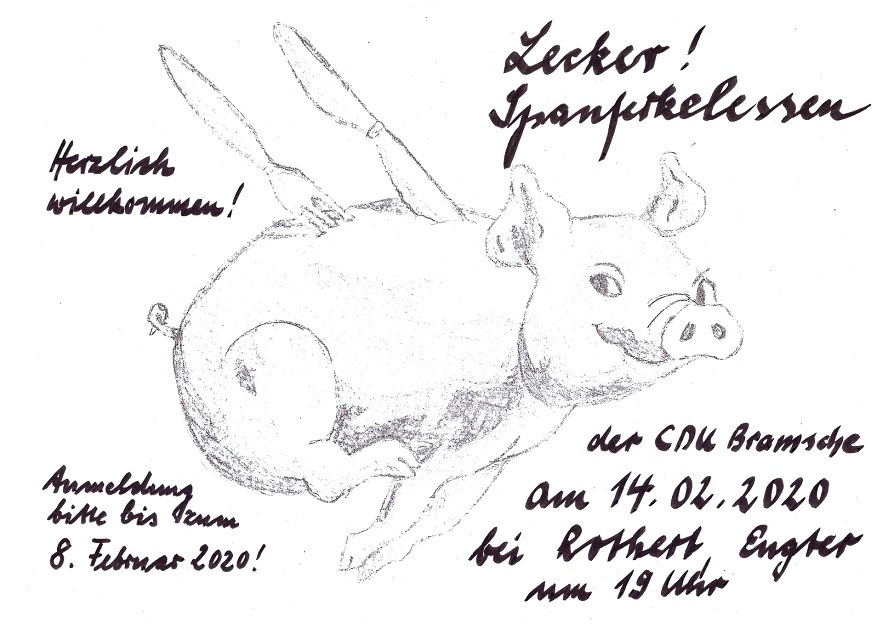 Lecker!
Spanferkelessen
Herzlich
willkommen!
der CDU Bramsche
am 14.02.2020
bei Rothert, Engter
um 19 Uhr
Anmeldung
bitte bis zum
8. Februar 2020!